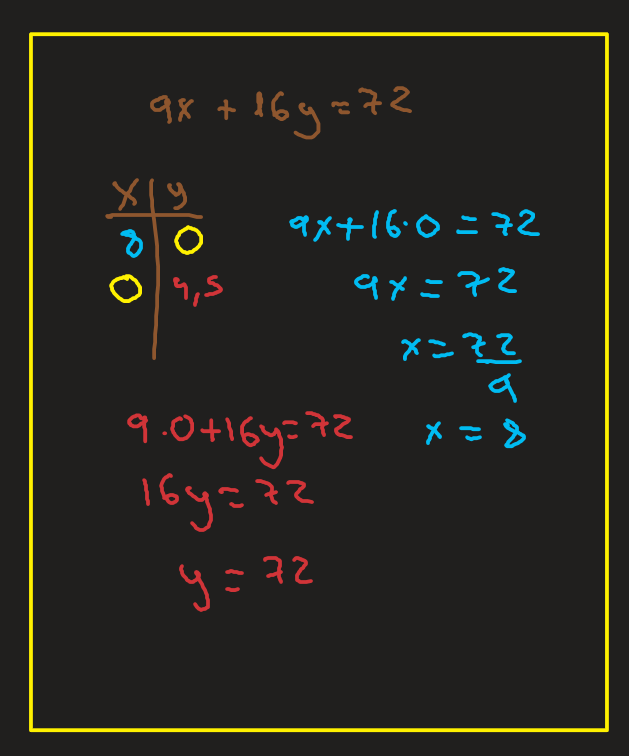 9x + 16y = 72
x | y
8 | 0
0 | 4,5
9x+16·0 = 72
9x = 72
x = 72/9
x = 8
9.0+16y=72
16y=72
y = 72